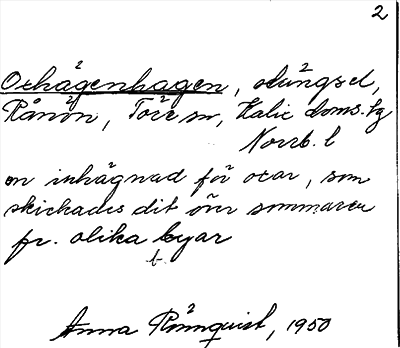 2
Oxhägenhagen, odüngsel,
Rånön, Töre sn, Kalix doms.hg
Norrb. l
en inhägnad för oxar, som
skickades dit över sommaren
fr. olika byar
b.
Anna Rönnquist, 1950